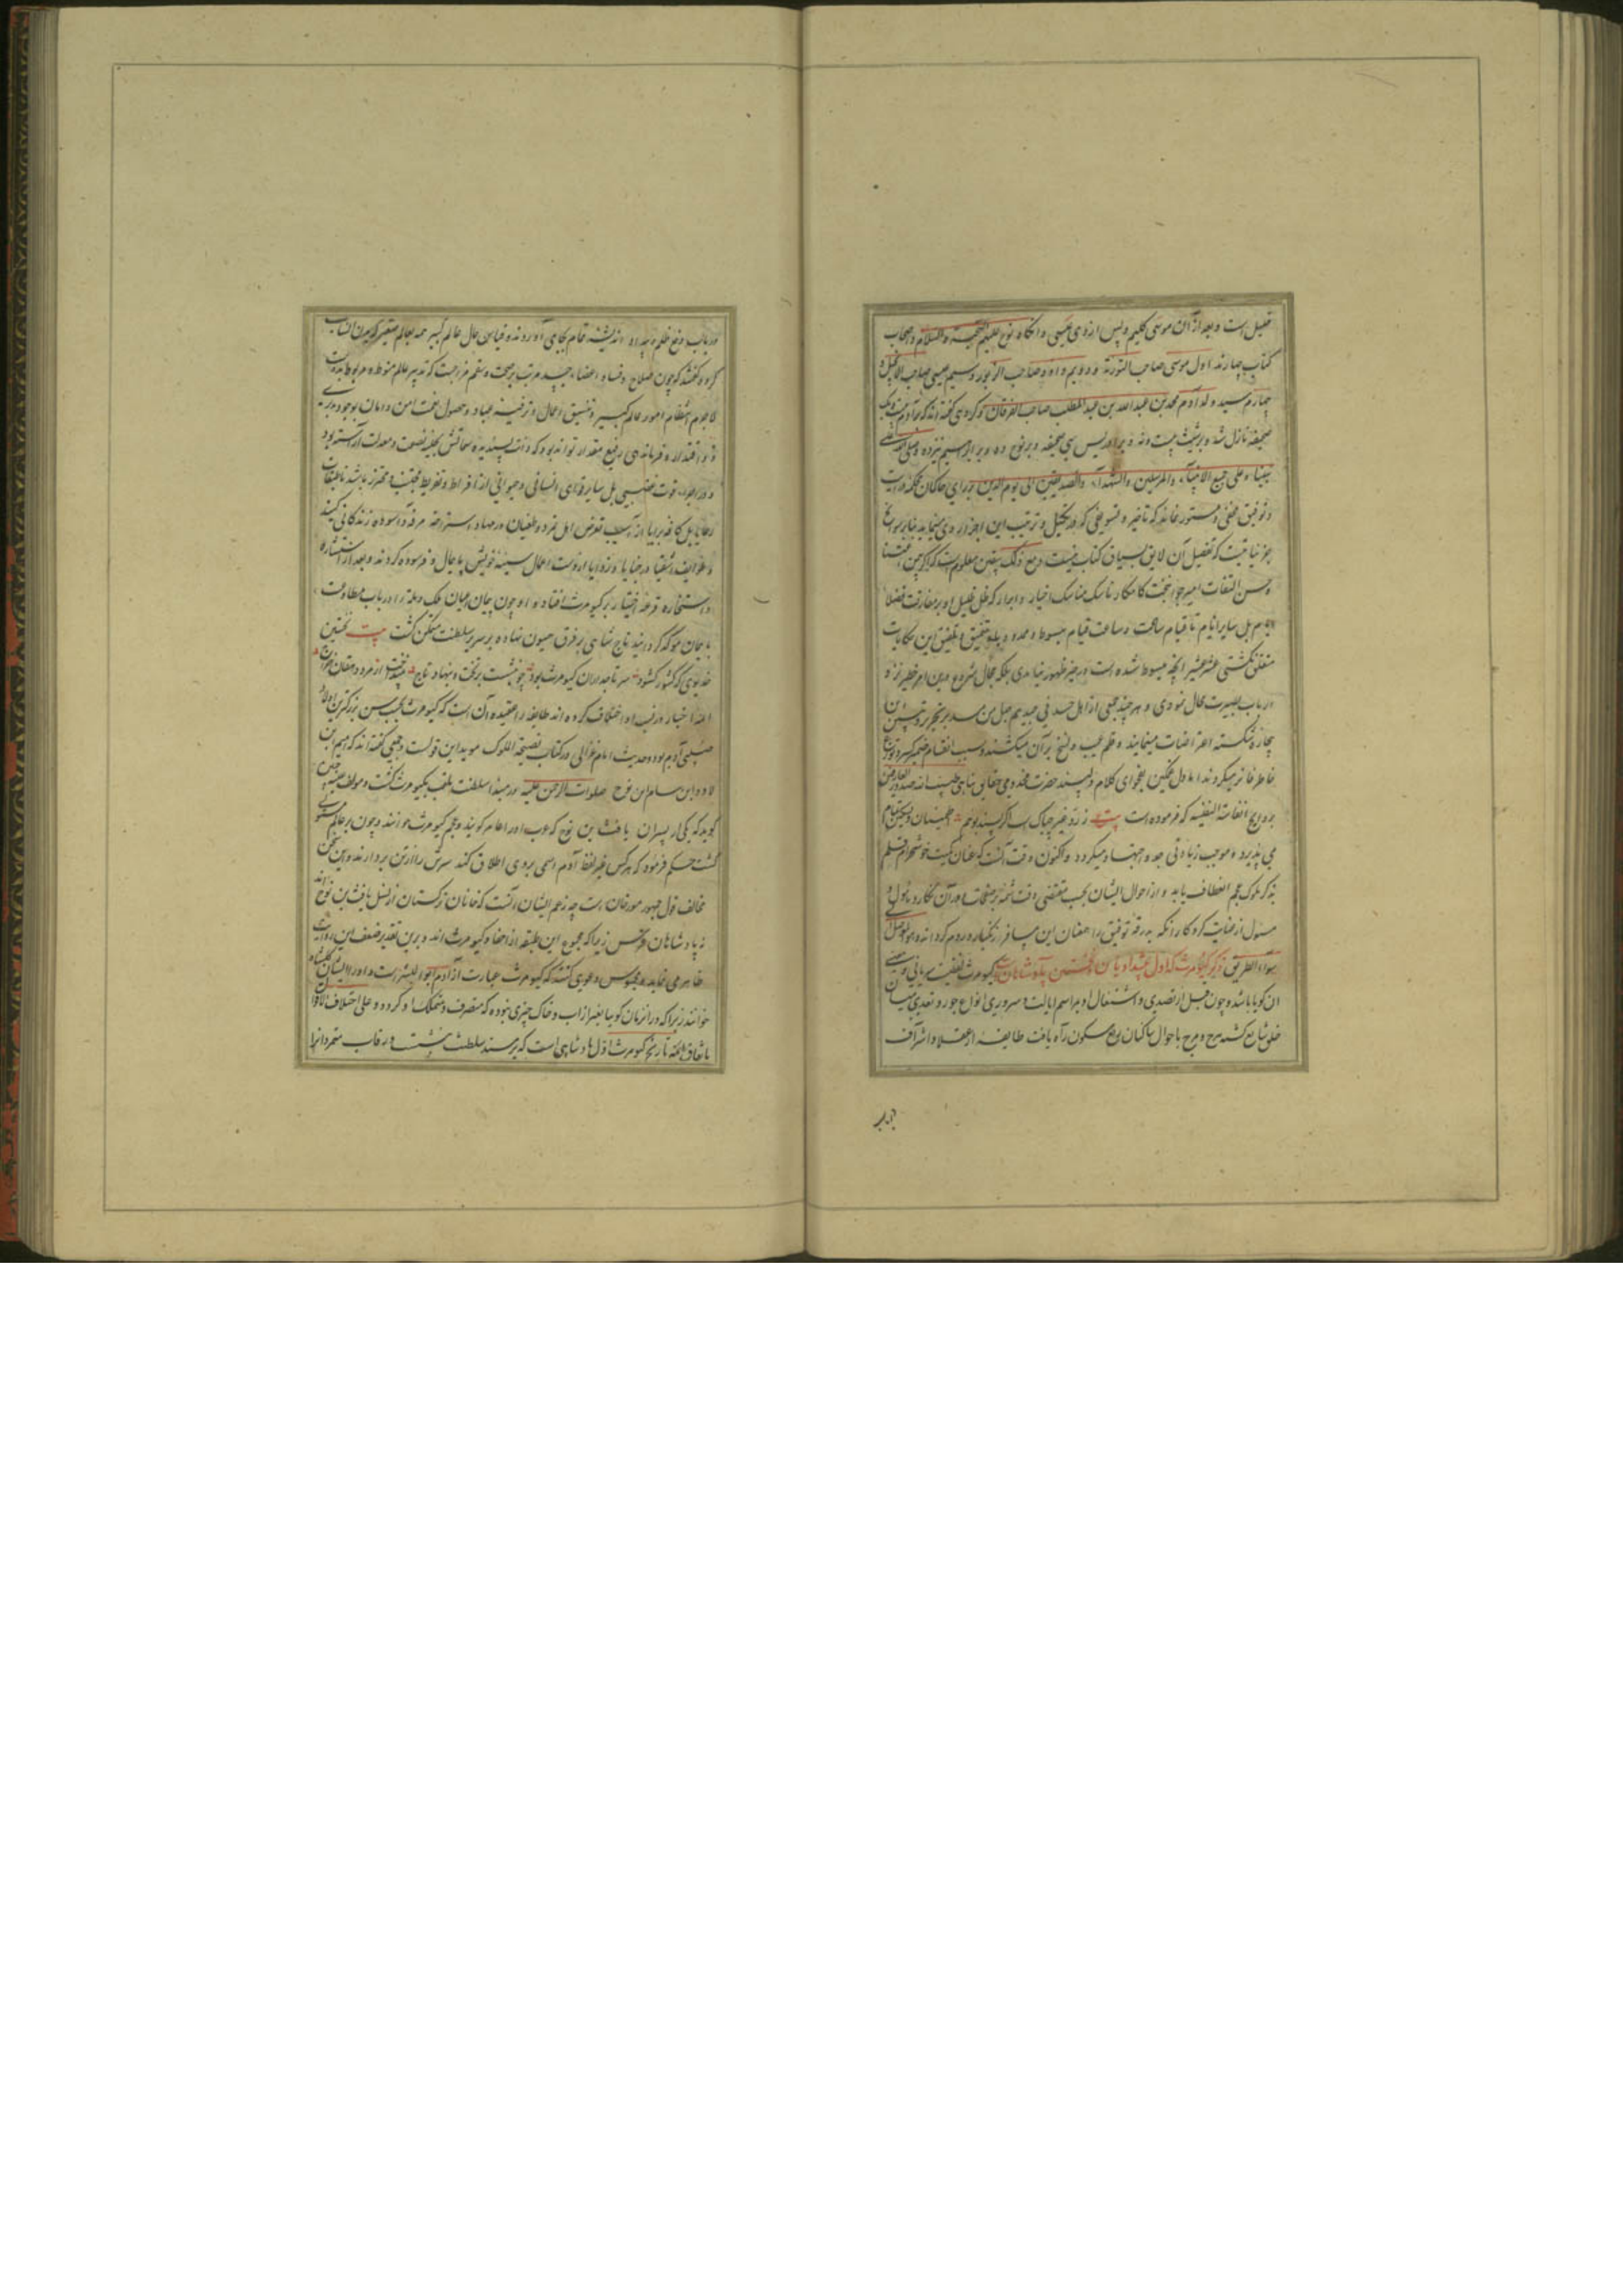 خلیل است و بعد از آن موسی کلیم و پس از وی عیسی و آنگاه نوح علیهم التحیة و السلام و اصحاب
کتاب چهارند اول موسی صاحب التوریة و دویم داود صاحب الزبور و سیم عیسی صاحب الانجیل و
چهارم سید ولد آدم محمد بن عبدالله بن عبدالمطلب صاحب الفرقان و گروهی گفته‌اند که بآدم بیست و یک
صحیفه نازل شده و بر شیث بیست و نه و بر ادریس سی صحیفه و بر نوح ده و بر ابراهیم سیزده و صلی الله علی
نبینا و علی جمیع الانبیاء والمرسلین والشهداء والصدیقین الی یوم الدین بر رای حاکمان محکمه درایت
و توفیق مخفی و مستور نماند که تاخیر و تسویفی که در تکمیل و ترتیب این اجزا روی مینماید بنابر سوانح
جزئیاتیست که تفصیل آن لایق سیاق کتاب نیست و مع ذلک بیقین معلوم است که اگر
و حسن التفات امیر جوانبخت کامکار ناسک مناسک اخیار و ابرار که ظل ظلیل او بر مفارق فضلاء
ایام بل سایر انام تا قیام ساعت و ساعت قیام مبسوط و ممدود باد بتحقیق و تلفیق این حکایات
متعلق نگشتی عشر عشیر آنچه مبسوط شده است در حیز ظهور نیامدی بلکه مجال شروع درین امر خطیر نزد
ارباب بصیرت محال نمودی و هر چند جمعی از اهل حسد فی جیدهم حبل من مسد بر تحریر و تبیین این
بیچاره شکسته اعتراضات مینمایند و قلم عیب و نسخ بر آن میکشند و سبب انقسام ضمیر کسیر و توزع
خاطر فاتر میگردند اما دل غمگین بفحوای کلام دلپسند حضرت مخدومی حقایق پناهی
بروایح انفاسه النفیسه که فرموده است بیت ز رد غیر چه باک ار پسند او شوم
می پذیرد و موجب زیادتی جد و اجتهاد میگردد و اکنون وقت آنست که عنان کمیت خوشخرام قلم
بذکر ملوک عجم انعطاف یابد و از احوال ایشان بحسب مقتضی وقت شمه بر صفحات اوراق نگارد و مامول و
مسول از عنایت کردگار آنکه بدرقه توفیق را همعنان این مسافر گرداند و هو الموصل الی
سواء الطریق ذکر کیومرث که اول پیشدادیان و نخستین پادشاهان است کیومرث لغتیست سریانی و معنی
آن گویا باشد و چون قبل از تصدی و اشتغال او بمراسم ایالت و سروری انواع جور و تعدی میان
خلق شایع گشته هرج و مرج باحوال ساکنان ربع مسکون راه یافت طایفه از عقلا و اشراف
در باب
در باب دفع ظلم و بیداد اندیشه تمام بجای آوردند و قیاس حال عالم کبیر
کرده گفتند که چون صلاح و فساد اعضاء جسد مرتب بر صحت و سقم مزاجیست که تدبیر عالم منوط و مربوط بدوست
لاجرم انتظام امور عالم کبیر و تنسیق اعمال و ترفیه عباد و حصول نعمت امن و امان بوجود مدبری
ذو اقتدار و فرماندهی رفیع مقدار تواند بود که ذات پسندیده سماتش بحلیه نصفت و معدلت آراسته بود
و در اجراء قوت غضبی بل سایر قوای انسانی و حیوانی از افراط و تفریط مجتنب و محترز باشد تا طبقات
رعایا بل کافه برایا از آسیب تعرض اهل تمرد و طغیان در مهاد استراحت مرفه و آسوده زندگانی کنند
و طوایف اشقیا در خبایا و زوایا از دست اعمال سیئه خویش پایمال و فرسوده گردند و بعد از استشاره
و استخاره قرعه اختیار بر کیومرث افتاد و او چون پیمان میان ملک و ملة را در باب مطاوعت
با ایمان موکد گردانید تاج شاهی بر فرق همیون نهاده بر سریر سلطنت متمکن گشت بیت نخستین
خدیوی که کشور گشود سر تاجداران کیومرث بود چو بنشست بر تخت و بنهاد تاج
ائمه اخبار در نسب او اختلاف کرده‌اند طایفه را عقیده آن است که کیومرث بحسب سن بزرگترین اولاد
صلبی آدم بود و حدیث امام غزالی در کتاب نصیحة الملوک موید این قولست و جمعی گفته‌اند که امیم ابن
لاود ابن سام ابن نوح صلوات الرحمن علیه در مبدأ سلطنت ملقب بکیومرث گشت و مولف
گوید که یکی از پسران یافث بن نوح که عرب او را عامر گویند و عجم کیومرث خوانند و چون بر عالم مستولی
گشت حکم فرمود که هر کس غیر لفظ آدم اسمی بر وی اطلاق کند سرش را از تن بردارند و این سخن
مخالف قول جمهور مورخان است چه زعم ایشان آنست که خانان ترکستان از نسل یافث بن نوح‌اند
نه پادشاهان فرس زیرا که مجموع این طبقه از احفاد کیومرث‌اند و برین تقدیر ضعف این روایت
ظاهر می‌نماید و مجوس دعوی کنند که کیومرث عبارت از آدم ابوالبشر است و او را ایشان گلشاه
خوانند زیرا که در آن زمان گویا بغیر از آب و خاک چیزی نبوده که متصرف و متملک او گردد و علی اختلاف الاقوال
باتفاق ائمه تاریخ کیومرث اول پادشاهی است که بر مسند سلطنت نشست و رقاب متمردانرا